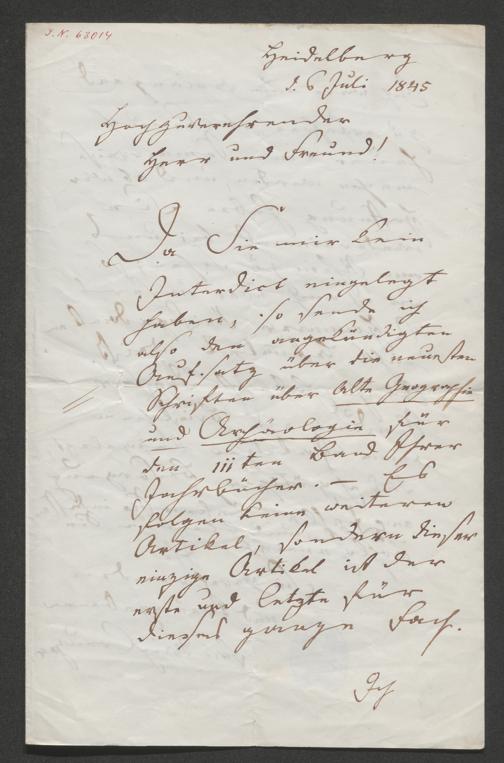 J. N. 63014
Heidelberg
d. 6 Juli 1845
Hochzuverehrender
Herr und Freund!
Da Sie mir kein
Interdict eingelegt
haben, so sende ich
also den angekündigten
Aufsatz über die neuesten
Schriften über Alte Geographie
und Archäologie für
den IIIten Band Ihrer
Jahrbücher. — Es
folgen keine weiteren
Artikel, sondern dieser
einzige Artikel ist der
erste und letzte für
dieses ganze Fach.
Ich